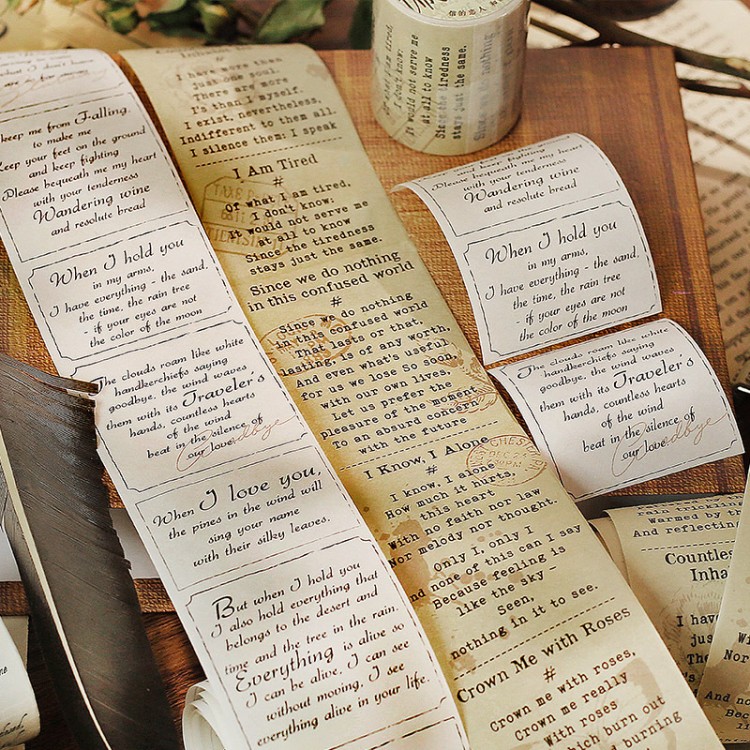 what I don't have
keep me from Falling,
to make me
Keep your feet on the ground
and keep fighting
Please bequeath me my heart
with your tenderness
Wandering wine
and resolute bread
When I hold you
in my arms,
I have everything - the sand,
the time, the rain tree
- if your eyes are not
the color of the moon
The clouds roam like white
handkerchiefs saying
goodbye, the wind waves
them with its Traveler's
hands, countless hearts
of the wind
beat in the silence of
our love
Goodbye
When I love you,
the pines in the wind will
sing your name
with their silky leaves.
But when I hold you
I also hold everything that
belongs to the desert and
time and the tree in the rain.
Everything is alive so
I can be alive. I can see
without moving, I see
everything alive in your life.
I have more than
just one soul.
There are more
I's than I myself.
I exist, nevertheless,
Indifferent to them all.
I silence them: I speak
I Am Tired
#
Of what I am tired,
I don't know:
It would not serve me
at all to know
Since the tiredness
stays just the same.
Since we do nothing
in this confused world
#
Since we do nothing
in this confused world
That lasts or that,
lasting, is of any worth,
And even what's useful
for us we lose So soon,
with our own lives,
Let us prefer the
pleasure of the moment
To an absurd concern
with the future
I Know, I Alone
#
I know, I alone
How much it hurts,
this heart
With no faith nor law
Nor melody nor thought.
Only I, only I
And none of this can I say
Because feeling is
like the sky –
Seen,
nothing in it to see.
Crown Me with Roses
#
Crown me with roses,
Crown me really
With roses
which burn out
burning
I don't know:
It would not serve me
at all to know
Since the tiredness
stays just the same.
Please bequeath me my heart
with your tenderness
Wandering wine
and resolute bread
When I hold you
in my arms,
I have everything - the sand,
the time, the rain tree
- if your eyes are not
the color of the moon
The clouds roam like white
handkerchiefs saying
goodbye, the wind waves
them with its Traveler's
hands, countless hearts
of the wind
beat in the silence of
our love
Goodbye
Warmed by
And reflecting
Countless
Inha
#
I have
jus